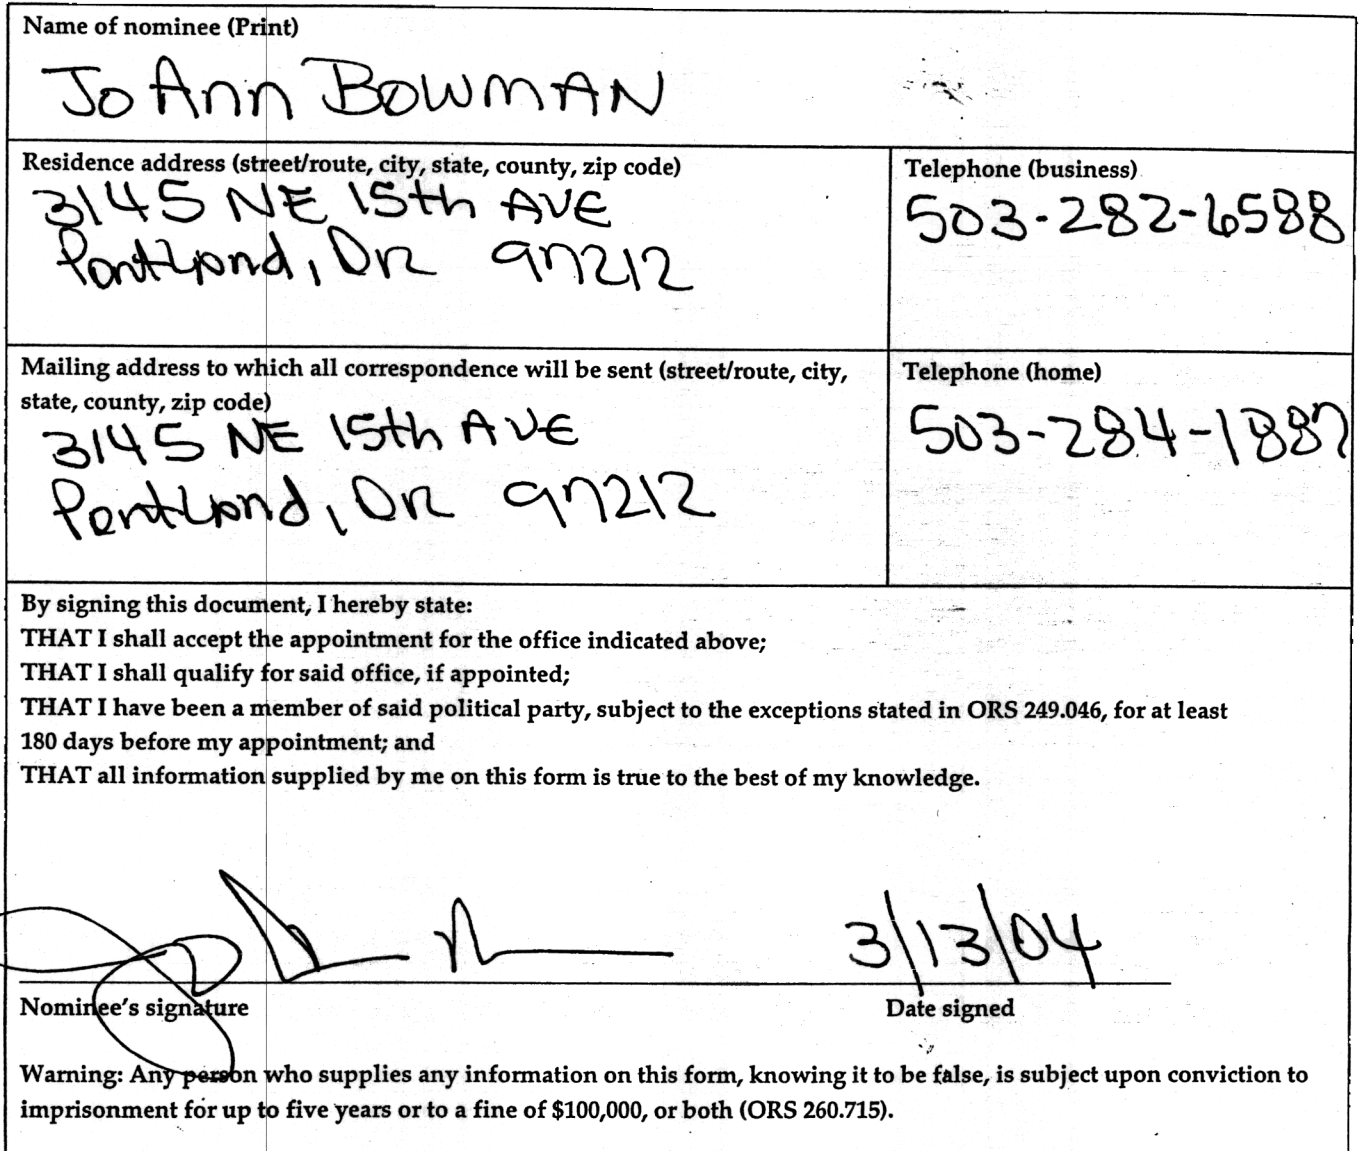 Name of nominee (Print)
JoAnn BOWMAN
Residence address (street/route, city, state, county, zip code)
3145 NE 15th AVE
Portland, OR 97212
Telephone (business)
503-282-6588
Mailing address to which all correspondence will be sent (street/route, city,
state, county, zip code)
3145 NE 15th AVE
Portland, OR 97212
Telephone (home)
503-284-1887
By signing this document, I hereby state:
THAT I shall accept the appointment for the office indicated above;
THAT I shall qualify for said office, if appointed;
THAT I have been a member of said political party, subject to the exceptions stated in ORS 249.046, for at least
180 days before my appointment; and
THAT all information supplied by me on this form is true to the best of my knowledge.
3/13/04
Nominee's signature
Date signed
Warning: Any person who supplies any information on this form, knowing it to be false, is subject upon conviction to
imprisonment for up to five years or to a fine of $100,000, or both (ORS 260.715).